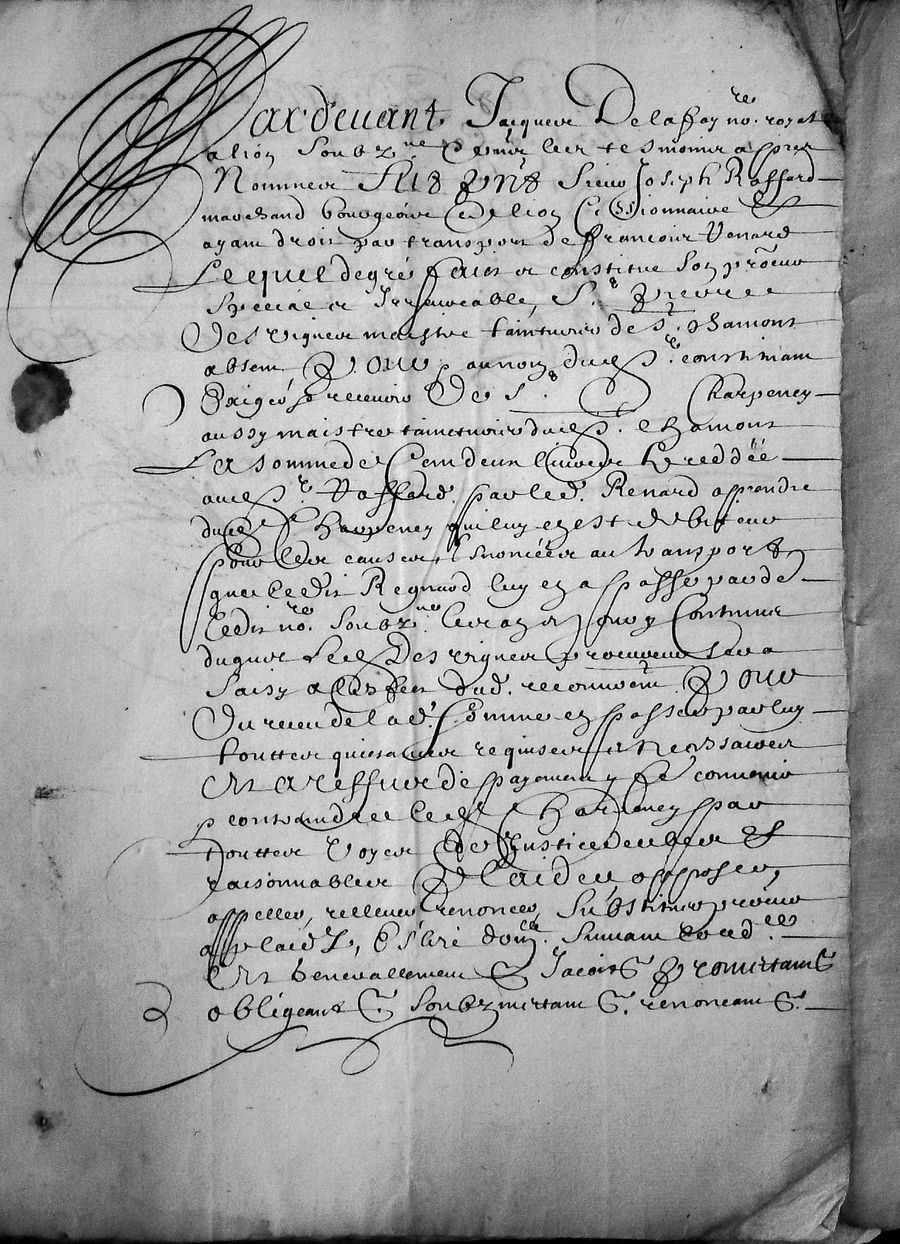 Pardevant Jacques Delafay no.re royal
a lion soubz.ne et les tesmoins apres
Nommes fust p.nt Sieur Joseph Raffard
marchand bourgeois de lion cessionnaire et
ayant droit par transport de francois Renard
Lequel de gré faict et constitue son pro.eur
special et Irrevocable, S.r pierre
Desvignes maistre tainturier de S.t chamont
absent pour p au nom dud. S.r constituant
Exiger et recevoir de S.r Charpeney
aussy maistre tainturier dud. S.t chamont
La somme de Cent deux livres ceddée
aud. S.r Raffard par led. Renard a prendre
dud. S.r Charpeney qui luy en est debiteur
pour les causes enoncées au transport
que ledit Regnard luy en a passé par de.
ledit no.re soubz.ne le
duquel led. S.r Desvignes procureur sera
saisy dud. pour
Du receu de la d. somme en passer par luy
touttes quittances requises et necessaires
Et a reffus de payement y
p contraindre led. S.r Charpeney par
touttes voyes de Justice deubes et
raisonnables plaider opposer,
appeller, relever renoncer, substituer pro.eur
a plaidz, Eslire domi.lle suivant l'ord.ce
Et generallement &c Jacoit &c promettant &c
obligeant &c soubzmettant &c. renonceant &c.